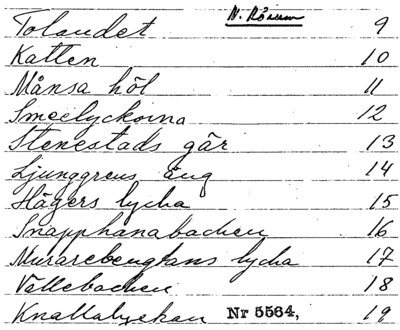 N. Rörum
Tolandet 9
Katten 10
Månsa höl 11
Smeelyckorna 12
Stenestads går 13
Ljunggrens äng 14
Hägers lycka 15
Snapphanabacken 16
Murarebengtans lycka 17
Vällebacken 18
Knallalyckan Nr 5564, 19